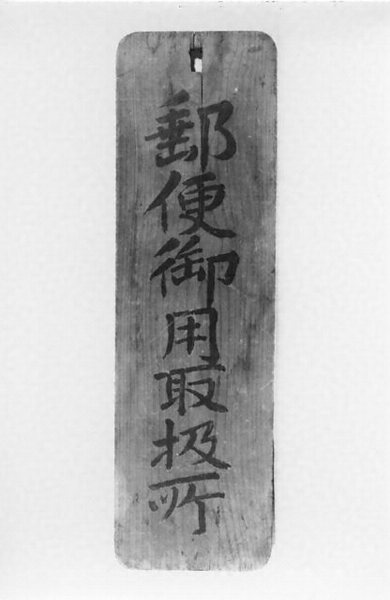 郵便御用取扱所